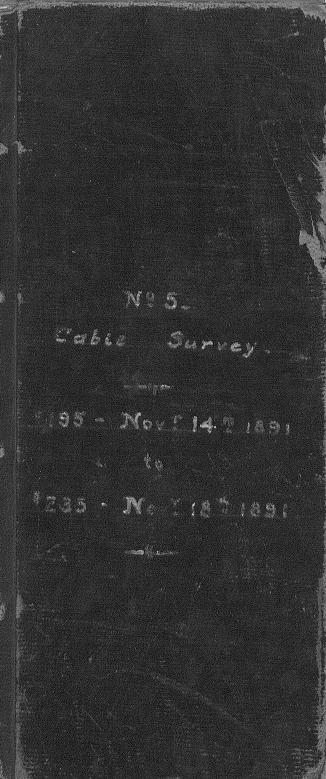 Nº 5.
Cable Survey.
195 - Novr 14th 1891
to
#235 - Novr 18th 1891